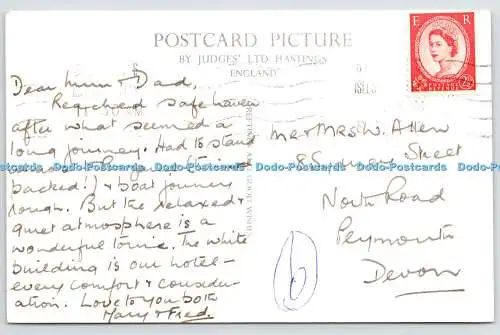 POSTCARD PICTURE
BY JUDGES' LTD HASTINGS
ENGLAND
E R
POSTAGE
REVENUE
2½D
Dear Mum & Dad,
Reached safe haven
after what seemed a
long journey. Had to stand
backed!) & boat journey
rough. But the relaxed &
quiet atmosphere is a
wonderful tonic. The white
building is our hotel –
every comfort & consider-
ation. Love to you both
Mary & Fred.
Mr & Mrs W. Allen
85 Street
North Road
Plymouth
Devon
6
Dodo-Postcards Dodo-Postcards Dodo-Postcards Dodo-Postcards Dodo-Postcards